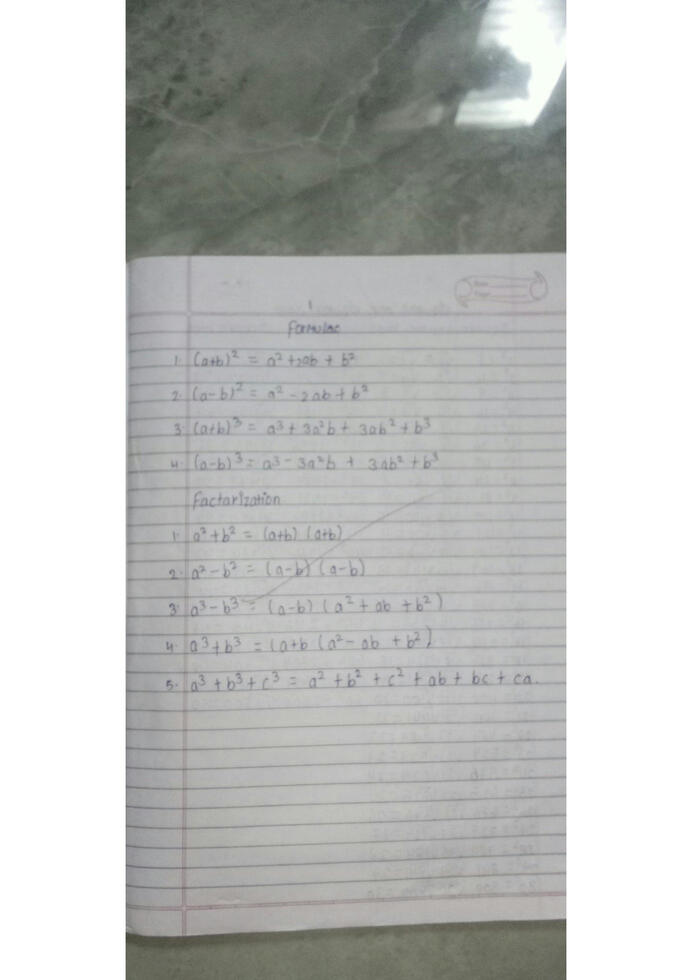 Formulae
1. (a+b)² = a² + 2ab + b²
2. (a-b)² = a² - 2ab + b²
3. (a+b)³ = a³ + 3a²b + 3ab² + b³
4. (a-b)³ = a³ - 3a²b + 3ab² + b³
Factarization
1. a² + b² = (a+b) (a+b)
2. a² - b² = (a-b) (a-b)
3. a³ - b³ = (a-b) (a² + ab + b²)
4. a³ + b³ = (a+b (a² - ab + b²)
5. a³ + b³ + c³ = a² + b² + c² + ab + bc + ca.